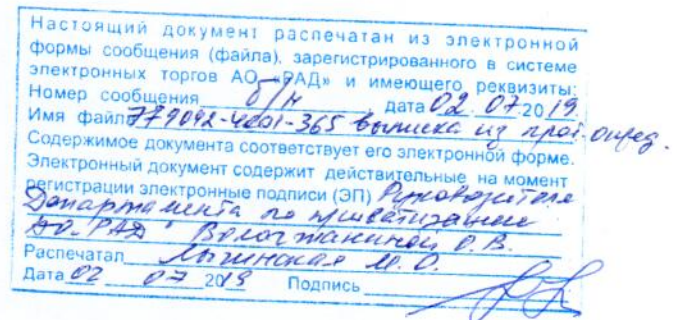 Настоящий документ распечатан из электронной
формы сообщения (файла), зарегистрированного в системе
электронных торгов АО «РАД» и имеющего реквизиты:
Номер сообщения б/н , дата 02.07.2019
Имя файла 779092-4601-365 выписка из прот. опред.
Содержимое документа соответствует его электронной форме.
Электронный документ содержит действительные на момент
регистрации электронные подписи (ЭП) Руководителя
Департамента по приватизации
АО "РАД" Вологжаниной О. В.
Распечатал М. О.
Дата 02 07 2019 Подпись